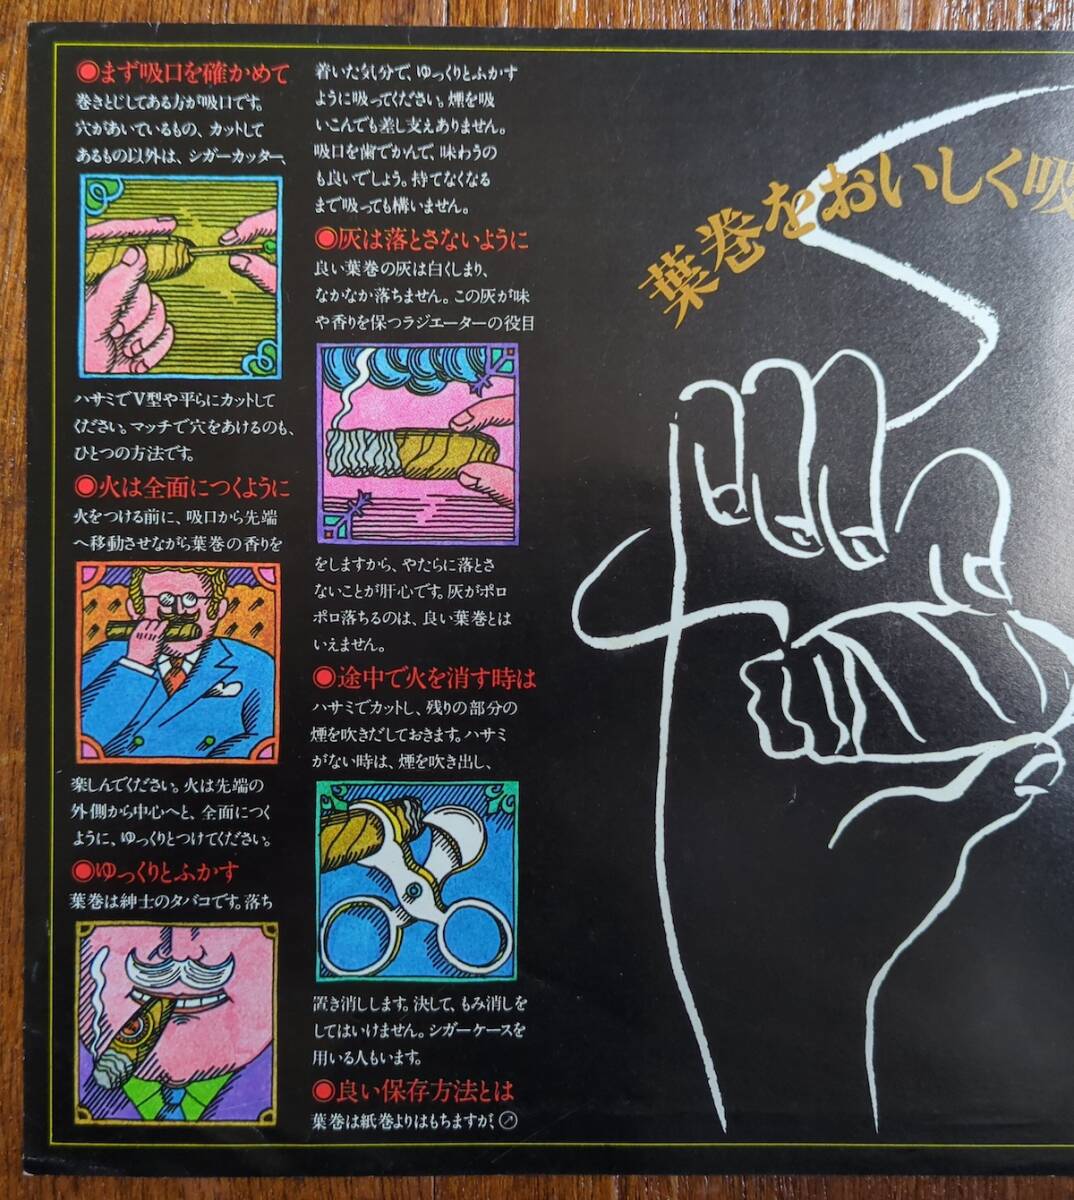 ◉まず吸口を確かめて
巻きとじしてある方が吸口です。
穴があいているもの、カットして
あるもの以外は、シガーカッター、
ハサミでV型や平らにカットして
ください。マッチで穴をあけるのも、
ひとつの方法です。
◉火は全面につくように
火をつける前に、吸口から先端
へ移動させながら葉巻の香りを
楽しんでください。火は先端の
外側から中心へと、全面につく
ように、ゆっくりとつけてください。
◉ゆっくりとふかす
葉巻は紳士のタバコです。落ち
着いた気分で、ゆっくりとふかす
ように吸ってください。煙を吸
いこんでも差し支えありません。
吸口を歯でかんで、味わうの
も良いでしょう。持てなくなる
まで吸っても構いません。
◉灰は落とさないように
良い葉巻の灰は白くしまり、
なかなか落ちません。この灰が味
や香りを保つラジエーターの役目
をしますから、やたらに落とさ
ないことが肝心です。灰がポロ
ポロ落ちるのは、良い葉巻とは
いえません。
◉途中で火を消す時は
ハサミでカットし、残りの部分の
煙を吹きだしておきます。ハサミ
がない時は、煙を吹き出し、
置き消しします。決して、もみ消しを
してはいけません。シガーケースを
用いる人もいます。
◉良い保存方法とは
葉巻は紙巻よりはもちますが、
葉巻をおいしく吸